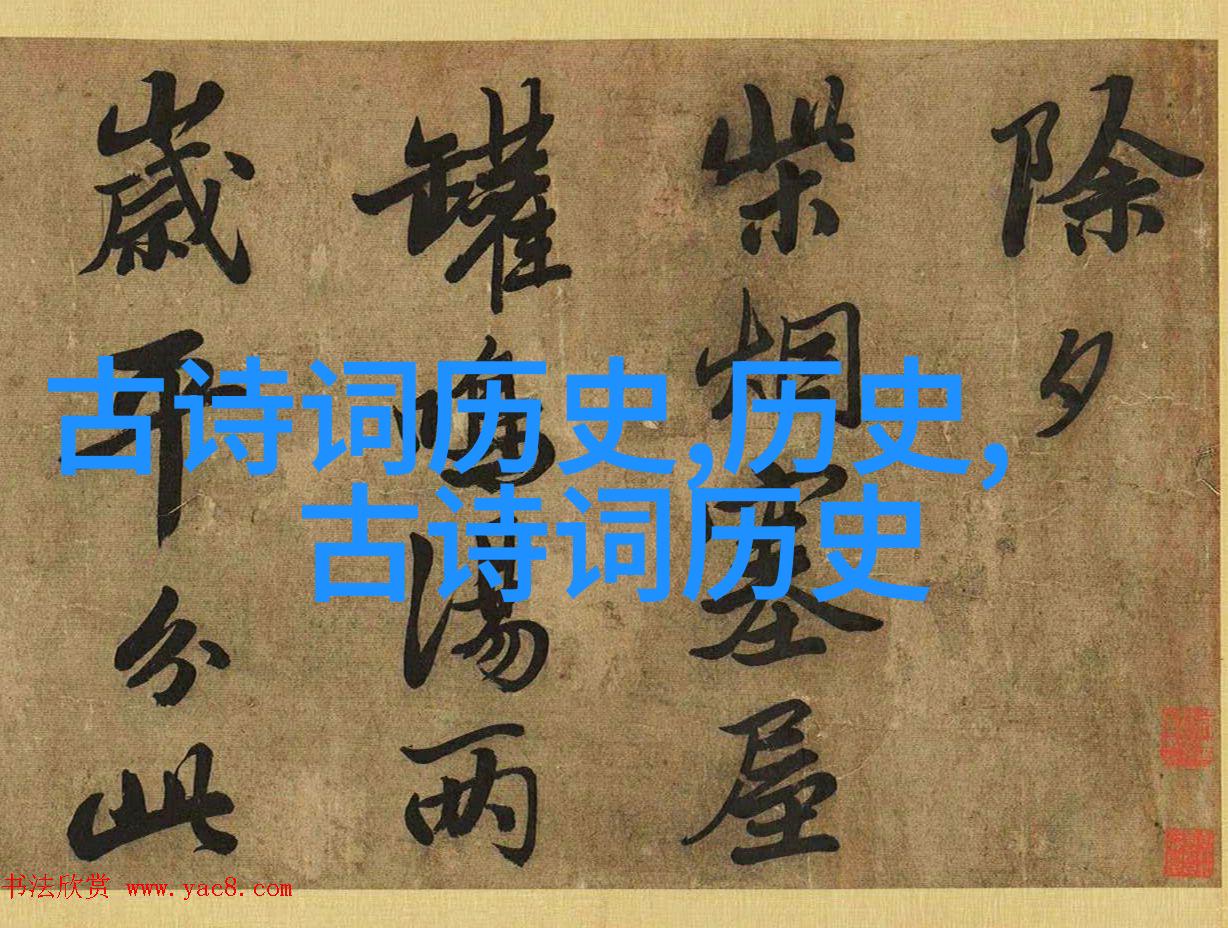 除夕
柴烟塞屋
罐鳴湯两
歲平分此
古诗词历史,历史,
古诗词历史
书法欣赏 www.yac8.com